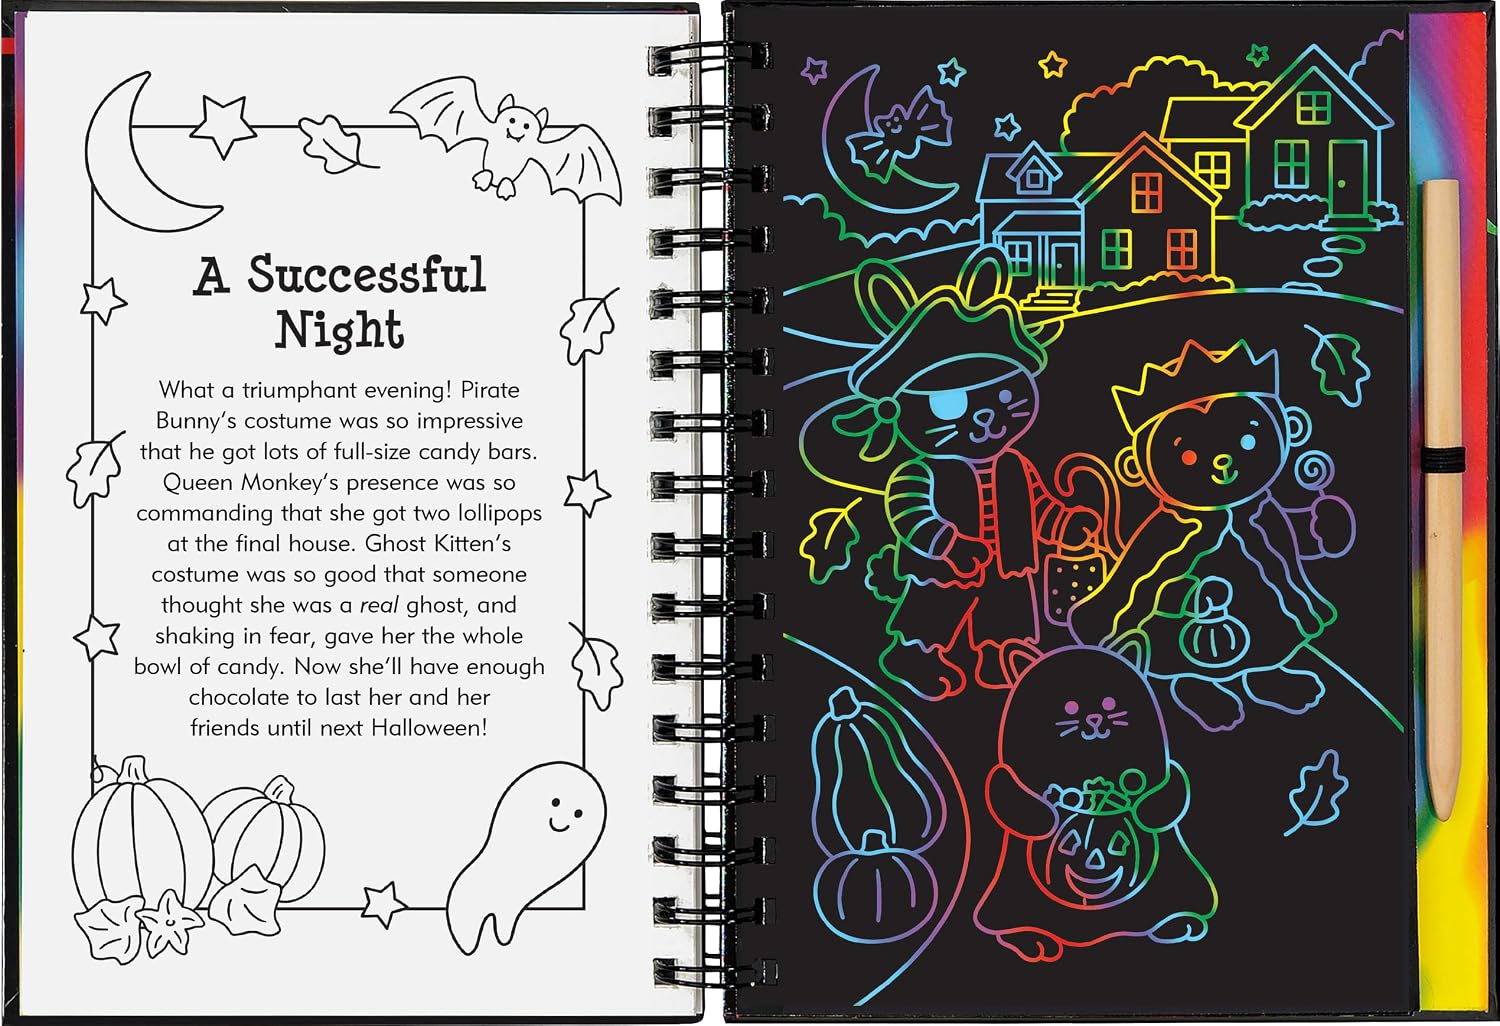 A Successful
Night
What a triumphant evening! Pirate
Bunny's costume was so impressive
that he got lots of full-size candy bars.
Queen Monkey's presence was so
commanding that she got two lollipops
at the final house. Ghost Kitten's
costume was so good that someone
thought she was a real ghost, and
shaking in fear, gave her the whole
bowl of candy. Now she'll have enough
chocolate to last her and her
friends until next Halloween!